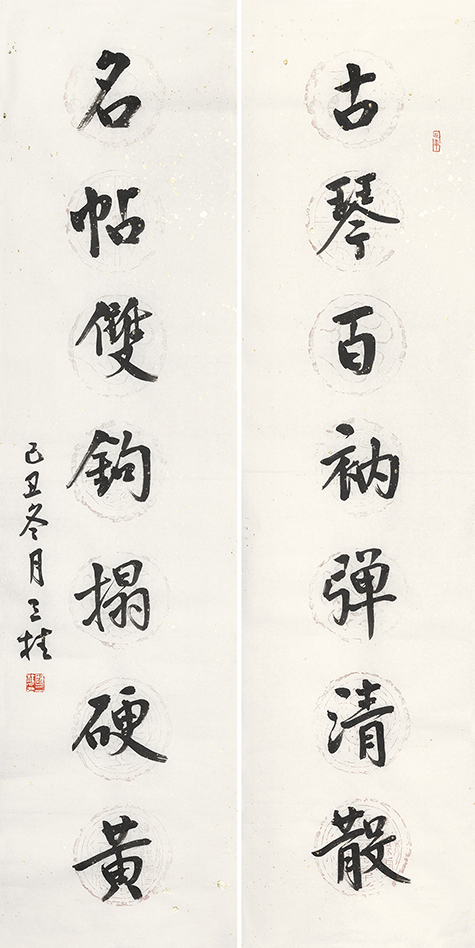 古琴百衲弹清散
名帖雙鈎搨硬黃
己丑冬月王桂